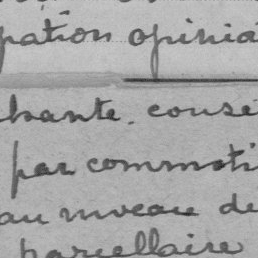 pation opinia
hante. conse
par commoti
au niveau de
parcellaire